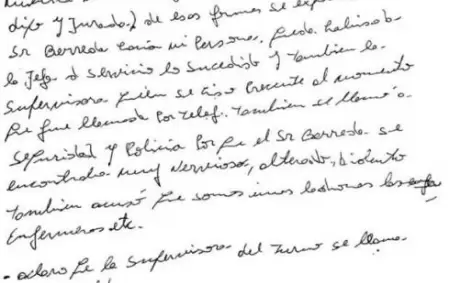 dijo y Jurado) de esas formas se
Sr Berreda con mi Persona. Pude hablar
la Jefa d servicio lo Sucedido y tambien la
Supervisora quien se hiso Presente al momento
que fue llamada Por telef. tambien se llamó a
Seguridad y Policia Por que el Sr Berreda se
encontraba muy Nervioso, alterado, violento
tambien acusó que somos unos ladrones los
Enfermeros etc.
- aclaro que la Supervisora del turno se llama